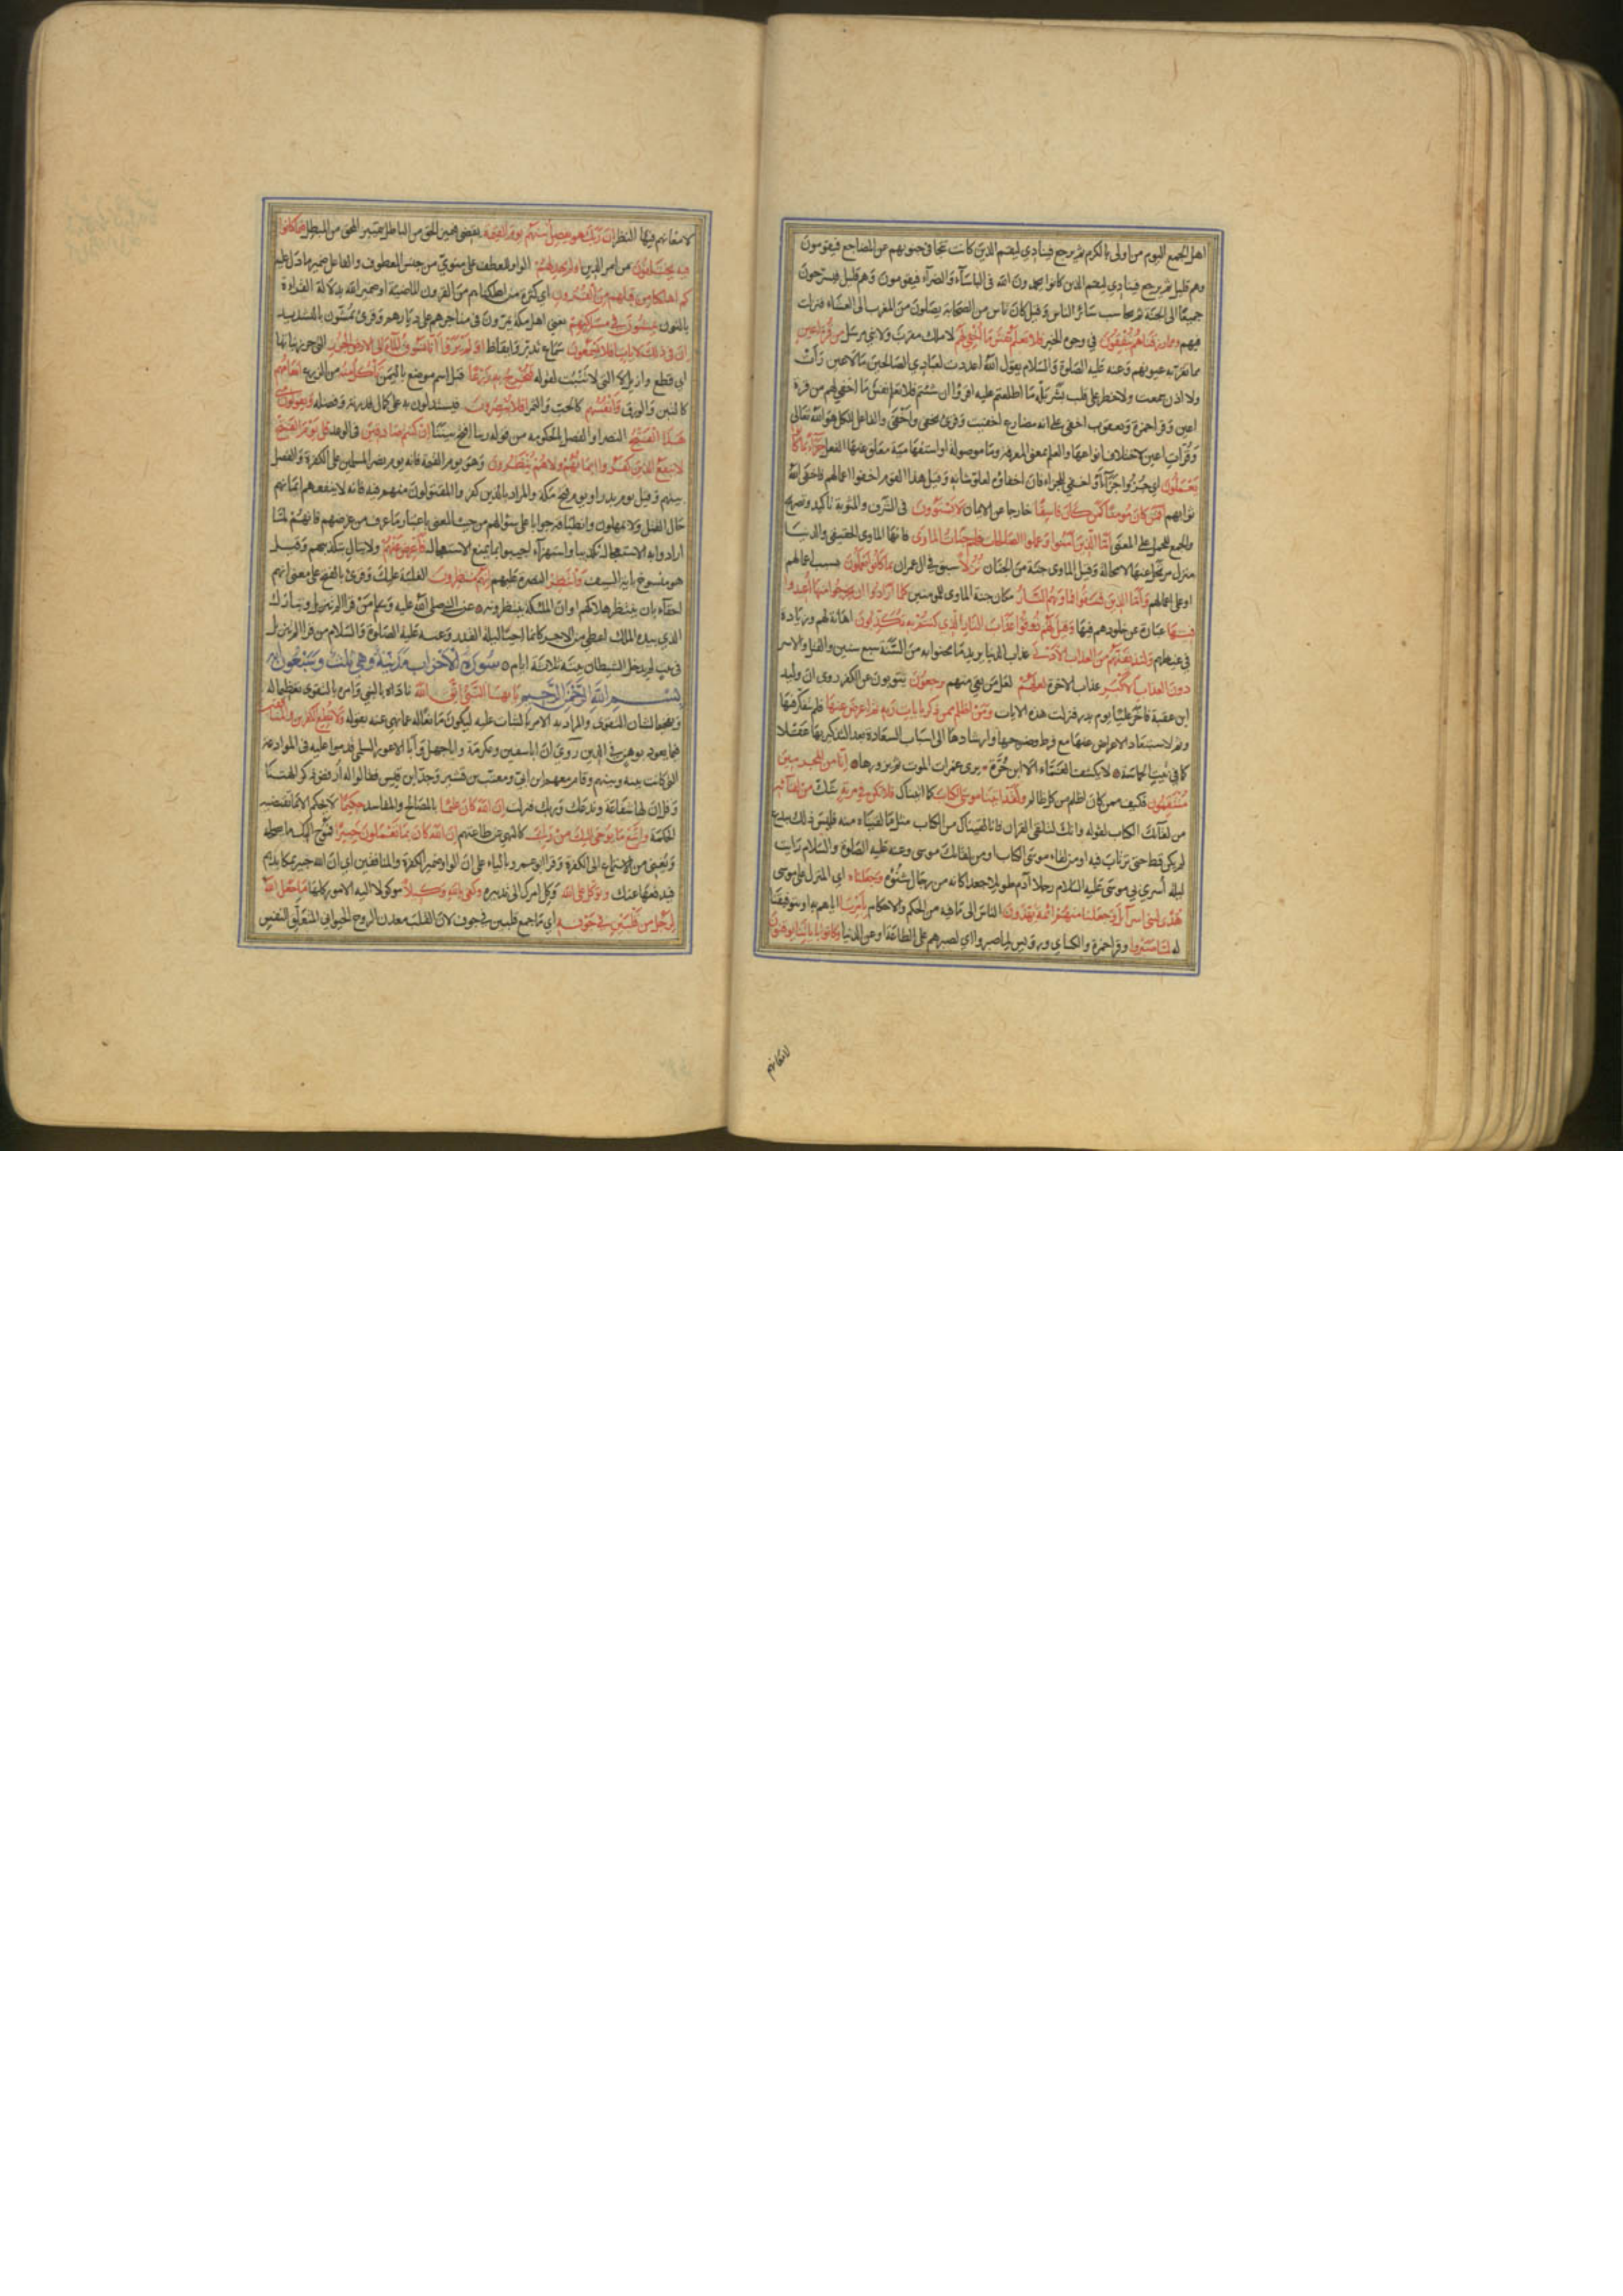 اهل الجمع اليوم من اولى بالكرم ثم يرجع فينادي ليقم الذين كانت تتجافى جنوبهم عن المضاجع فيقومون
وهم قليل ثم يرجع فينادي ليقم الذين كانوا يحمدون الله في البأساء والضراء فيقومون وهم قليل فيسرحون
جميعا الى الجنة ثم يحاسب سائر الناس وقيل كان ناس من الصحابة يصلون من المغرب الى العشاء فنزلت
فيهم ومما رزقناهم ينفقون في وجوه الخير فلا تعلم نفس ما اخفي لهم لا ملك مقرب ولا نبي مرسل من قرة اعين
مما تقر به عيونهم وعنه عليه الصلوة والسلام يقول الله اعددت لعبادي الصالحين ما لا عين رأت
ولا اذن سمعت ولا خطر على قلب بشر بله ما اطلعتم عليه اقرؤا ان شئتم فلا تعلم نفس ما اخفي لهم من قرة
اعين وقرا حمزة ويعقوب اخفي على انه مضارع اخفيت وقرئ نخفي واخفى والفاعل للكل هو الله تعالى
وقرات اعين لاختلاف انواعها والعلم بمعنى المعرفة وما موصولة او استفهامية معلق عنها الفعل جزاء بما كانوا
يعملون اي جزوا جزاء او اخفي للجزاء فان اخفاؤه لعلو شانه وقيل هذا القوم اخفوا اعمالهم فاخفى الله
ثوابهم افمن كان مؤمنا كمن كان فاسقا خارجا عن الايمان لا يستوون في الشرف والمثوبة تاكيد وتصريح
والجمع للحمل على المعنى اما الذين آمنوا وعملوا الصالحات فلهم جنات الماوى فانها الماوى الحقيقي والدنيا
منزل مرتحل عنها لا محالة وقيل الماوى جنة من الجنان نزلا سبق في ال عمران بما كانوا يعملون بسبب اعمالهم
او على اعمالهم واما الذين فسقوا فماويهم النار مكان جنة الماوى للمؤمنين كلما ارادوا ان يخرجوا منها اعيدوا
فيها عبارة عن خلودهم فيها وقيل لهم ذوقوا عذاب النار الذي كنتم به تكذبون اهانة لهم وزيادة
في غيظهم ولنذيقنهم من العذاب الادنى عذاب الدنيا يريد ما محنوا به من السنة سبع سنين والقتل والاسر
دون العذاب الاكبر عذاب الاخرة لعلهم لعل من بقي منهم يرجعون يتوبون عن الكفر روى ان وليد
ابن عقبة فاخر عليا يوم بدر فنزلت هذه الايات ومن اظلم ممن ذكر بايات ربه ثم اعرض عنها فلم يتفكر فيها
وثم لاستبعاد الاعراض عنها مع فرط وضوحها وارشادها الى اسباب السعادة بعد التذكير بها عقلا
كما في بيت الحماسة لا يكشف الغماء الا ابن حرة يرى غمرات الموت ثم يزورها انا من المجرمين
منتقمون فكيف ممن كان اظلم من كل ظالم ولقد اتينا موسى الكتاب كما اتيناك فلا تكن في مرية شك من لقائه
من لقائك الكتاب لقوله وانك لتلقى القران فانا لقيناك من الكتاب مثل ما لقيناه منه فليس ذلك ببدع
لم يكن قط حتى ترتاب فيه او من لقاء موسى الكتاب او من لقائك موسى وعنه عليه الصلوة والسلام رايت
ليلة أسري بي موسى عليه السلام رجلا آدم طويلا جعدا كانه من رجال شنؤة وجعلناه اي المنزل على موسى
هدى لبني اسرآئل وجعلنا منهم ائمة يهدون الناس الى ما فيه من الحكم والاحكام بامرنا اياهم به او بتوفيقنا
له لما صبروا وقرا حمزة والكساي ورويس لما صبروا اي لصبرهم على الطاعة او عن الدنيا وكانوا باياتنا يوقنون
لامعانهم
لامعانهم فيها النظر ان ربك هو يفصل بينهم يوم القيمة يقضي فيميز الحق من الباطل بتمييز المحق من المبطل فيما كانوا
فيه يختلفون من امر الدين اولم يهد لهم الواو للعطف على منوي من جنس المعطوف والفاعل ضمير ما دل عليه
كم اهلكنا من قبلهم من القرون اي كثرة من اهلكناهم من القرون الماضية او ضمير الله بدلالة القراءة
بالنون يمشون في مساكنهم يعني اهل مكة يمرون في متاجرهم على ديارهم وقرئ يمشون بالتشديد
ان في ذلك لايات افلا يسمعون سماع تدبر واتعاظ اولم يروا انا نسوق الماء الى الارض الجرز التي جرز نباتها
اي قطع وازيل لا التي لا تنبت لقوله فنخرج به زرعا وقيل اسم موضع باليمن تأكل منه من الزرع انعامهم
كالتبن والورق وانفسهم كالحب والثمر افلا يبصرون فيستدلون به على كمال قدرته وفضله ويقولون متى
هذا الفتح النصر او الفصل بالحكومة من قوله ربنا افتح بيننا ان كنتم صادقين في الوعد قل يوم الفتح
لا ينفع الذين كفروا ايمانهم ولا هم ينظرون وهو يوم القيمة فانه يوم نصر المسلمين على الكفرة والفصل
بينهم وقيل يوم بدر او يوم فتح مكة والمراد بالذين كفروا المقتولون منهم فيه فانه لا ينفعهم ايمانهم
حال القتل ولا يمهلون وانطباقه جوابا على سؤالهم من حيث المعنى باعتبار ما عرف من غرضهم فانهم لما
ارادوا به الاستعجال تكذيبا واستهزاء اجيبوا بما يمنع الاستعجال فاعرض عنهم ولا تبال بتكذيبهم وقيل
هو منسوخ باية السيف وانتظر النصرة عليهم انهم منتظرون الغلبة عليك وقرئ بالفتح على معنى انهم
احقاء بان ينتظر هلاكهم او ان الملئكة ينتظرونه عن النبي صلى الله عليه وسلم من قرا الم تنزيل وتبارك
الذي بيده الملك اعطي من الاجر كانما احيا ليلة القدر وعنه عليه الصلوة والسلام من قرا الم تنزيل
في بيته لم يدخل الشيطان بيته ثلاثة ايام سورة الاحزاب مدنية وهي ثلث وسبعون اية
بسم الله الرحمن الرحيم يا ايها النبي اتق الله ناداه بالنبي وامره بالتقوى تعظيما له
وتفخيما لشان التقوى والمراد به الامر بالثبات عليه ليكون مانعا له عما نهي عنه بقوله ولا تطع الكافرين والمنافقين
فيما يعود بوهن في الدين روي ان ابا سفين وعكرمة وابا جهل وابا الاعور السلمي قدموا عليه في الموادعة
التي كانت بينه وبينهم وقام معهم ابن ابي ومعتب بن قشير وجد ابن قيس فقالوا له ارفض ذكر الهتنا
وقل ان لها شفاعة وندعك وربك فنزلت ان الله كان عليما بالمصالح والمفاسد حكيما لا يحكم الا بما تقتضيه
الحكمة واتبع ما يوحى اليك من ربك كالنهي عن طاعتهم ان الله كان بما تعملون خبيرا فموح اليك ما يصلحه
ويغني من الاستماع الى الكفرة وقرا ابو عمرو بالياء على ان الواو ضمير الكفرة والمنافقين اي ان الله خبير بمكايدهم
فيدفعها عنك وتوكل على الله وكل امرك الى تدبيره وكفى بالله وكيلا موكولا اليه الامور كلها ما جعل الله
لرجل من قلبين في جوفه اي ما جمع قلبين في جوف لان القلب معدن الروح الحيواني المتعلق للنفس